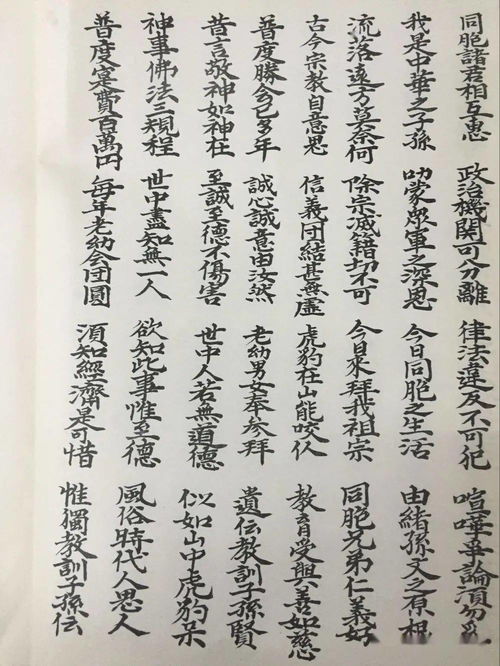 同胞諸君相互惠 政治機関可分離 律法違反不可犯 喧嘩爭論須勿
我是中華之子孫 叻蒙眾軍之深恩 今日同胞之生活 由緒孫文之原根
流落遠方莫奈何 除宗滅籍切不可 今日衆拜我祖宗 同胞兄弟仁義好
古今宗教自意思 信義団結甚無虛 虎豹在山能咬 教育受與善如慈
普度勝会已多年 誠心誠意由汝然 老幼男女奉參拜 遺伝教訓子孫賢
昔言敬神如神在 至誠至德不傷害 世中人若無道德 似如山中虎豹呆
神事佛法三規程 世中盡知無一人 欲知此事惟至德 風俗時代人思人
普度寔費百萬円 每年老幼会団圓 須知經濟是可惜 惟獨教訓子孫伝